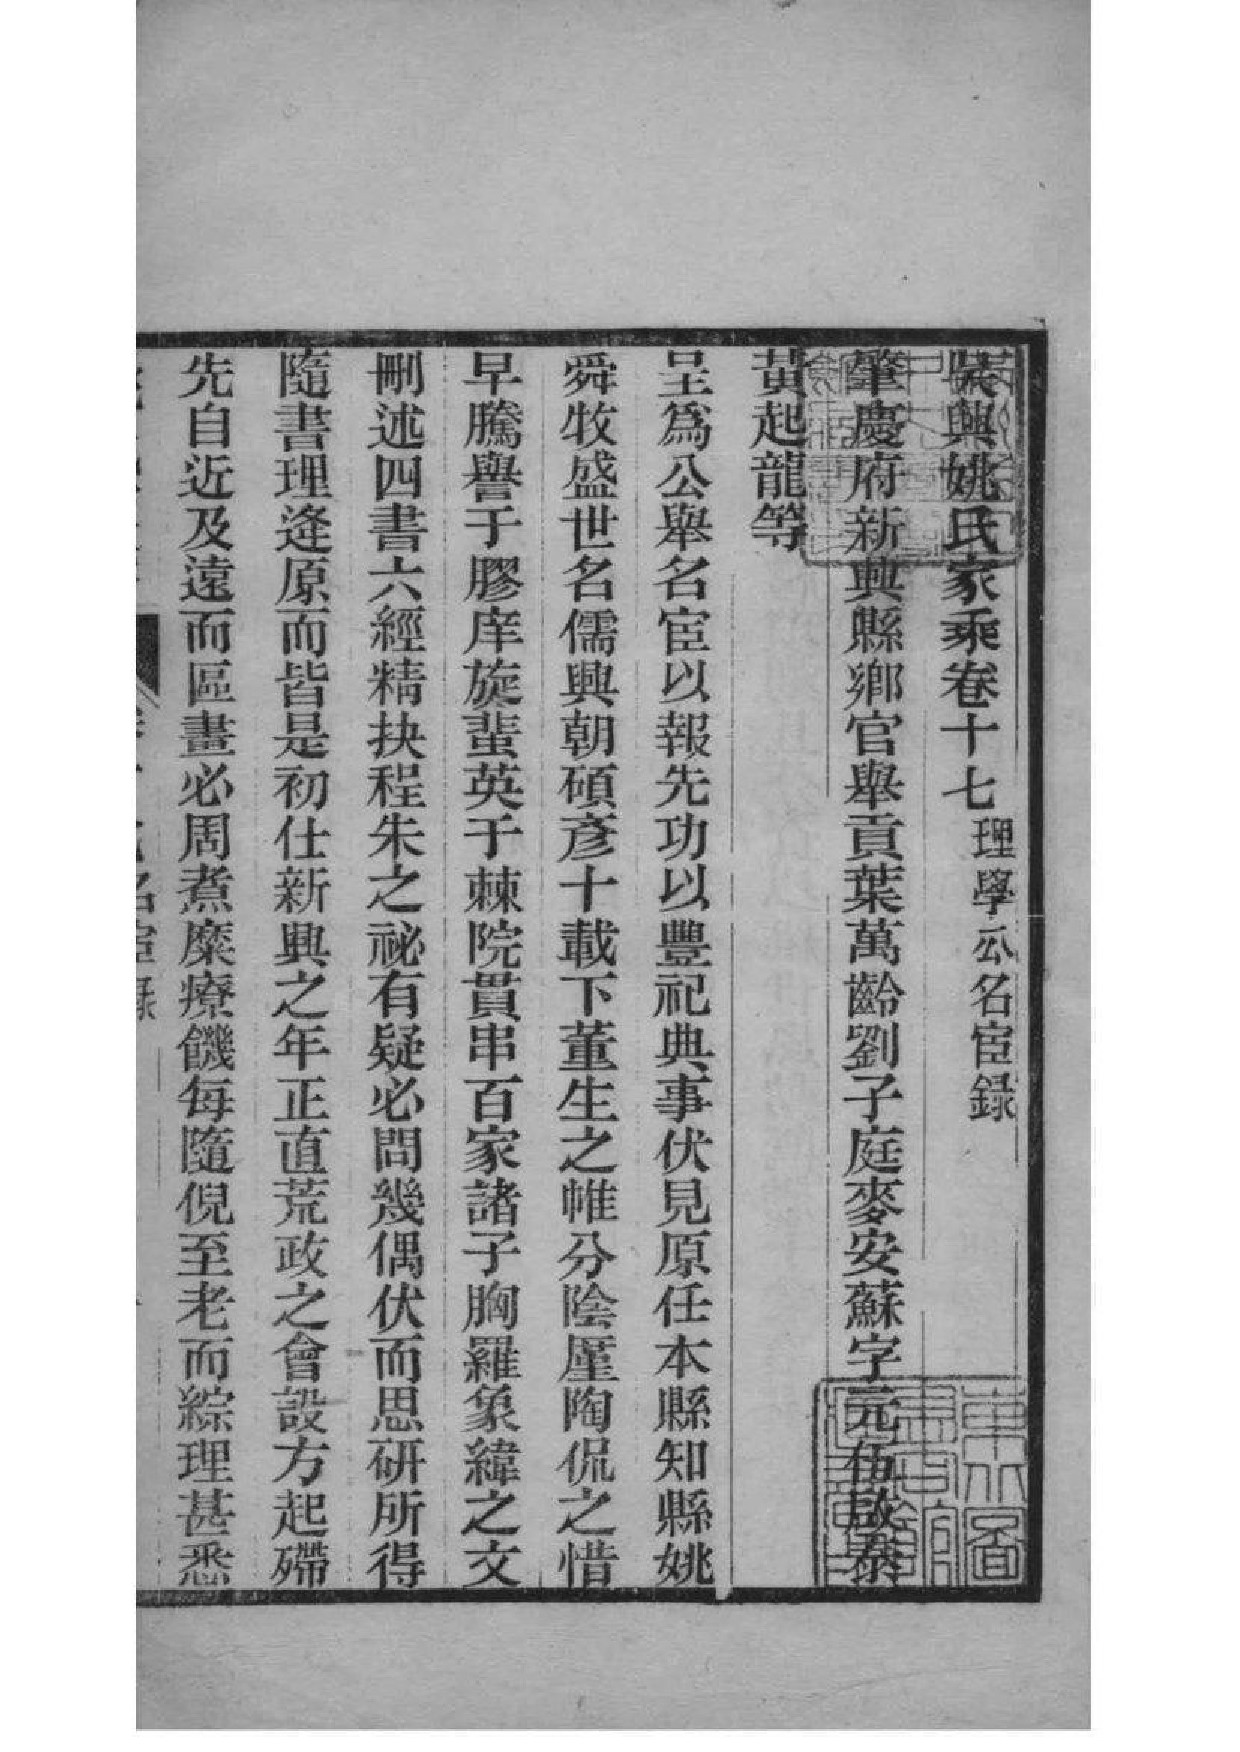 吳興姚氏家乘卷十七 理學公名宦錄
肇慶府新興縣鄉官舉貢葉萬齡劉子庭麥安蘇字元伍啟泰
黃起龍等
呈為公舉名宦以報先功以豐祀典事伏見原任本縣知縣姚
舜牧盛世名儒興朝碩彥十載下董生之帷分陰厪陶侃之惜
早騰譽于膠庠旋蜚英于棘院貫串百家諸子胸羅象緯之文
刪述四書六經精抉程朱之祕有疑必問幾偶伏而思研所得
隨書理逢原而皆是初仕新興之年正直荒政之會設方起殢
先自近及遠而區畫必周煮糜療饑每隨倪至老而綜理甚悉
名宦錄